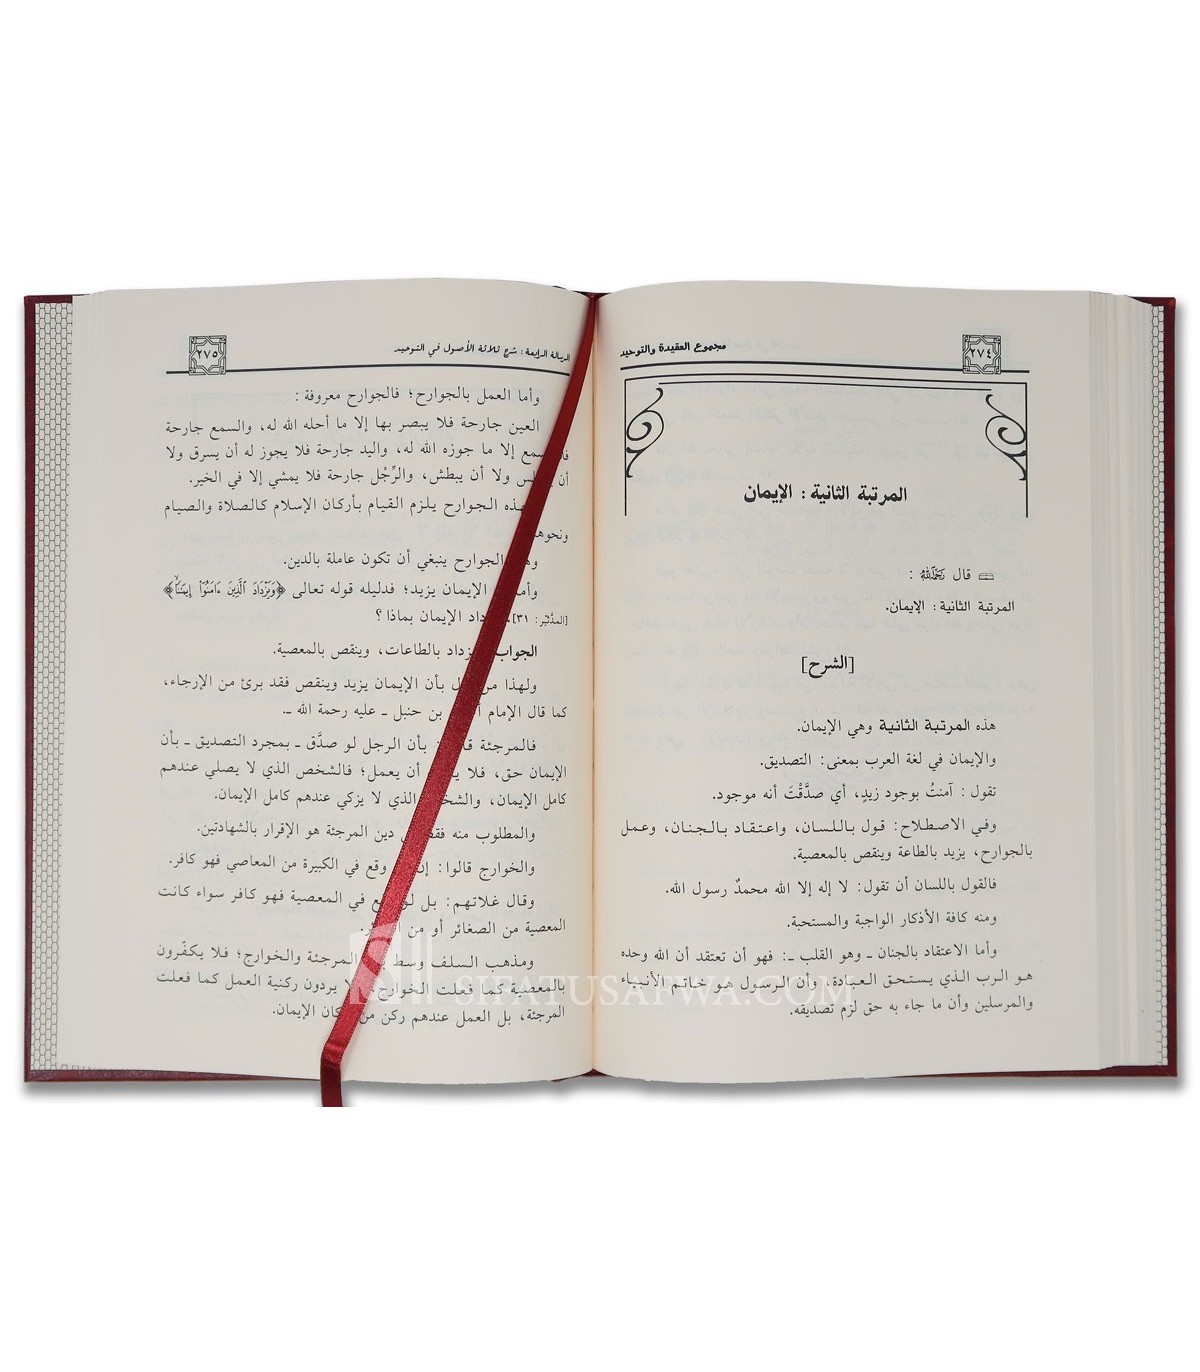 ٢٧٤
مجموع العقيدة والتوحيد
المرتبة الثانية: الإيمان
قال رَحِمَهُ اللهُ:
المرتبة الثانية: الإيمان.
[الشرح]
هذه المرتبة الثانية وهي الإيمان.
والإيمان في لغة العرب بمعنى: التصديق.
تقول: آمنتُ بوجود زيدٍ، أي صدَّقْتَ أنه موجود.
وفي الاصطلاح: قول باللسان، واعتقاد بالجنان، وعمل
بالجوارح، يزيد بالطاعة وينقص بالمعصية.
فالقول باللسان أن تقول: لا إله إلا الله محمدٌ رسول الله.
ومنه كافة الأذكار الواجبة والمستحبة.
وأما الاعتقاد بالجنان ـ وهو القلب ـ: فهو أن تعتقد أن الله وحده
هو الرب الذي يستحق العبادة، وأن الرسول هو خاتم الأنبياء
والمرسلين وأن ما جاء به حق لزم تصديقه.
الرسالة الرابعة: شرح ثلاثة الأصول في التوحيد
٢٧٥
وأما العمل بالجوارح؛ فالجوارح معروفة:
العين جارحة فلا يبصر بها إلا ما أحله الله له، والسمع جارحة
إلا ما جوزه الله له، واليد جارحة فلا يجوز له أن يسرق ولا
أن ولا أن يبطش، والرِّجْل جارحة فلا يمشي إلا في الخير.
الجوارح يلزم القيام بأركان الإسلام كالصلاة والصيام
ونحوها
الجوارح ينبغي أن تكون عاملة بالدين.
الإيمان يزيد؛ فدليله قوله تعالى ﴿وَيَزْدَادَ الَّذِينَ ءَامَنُوٓاْ إِيمَٰنًا﴾
[المدَّثِّر: ٣١]. الإيمان بماذا؟
الجواب بالطاعات، وينقص بالمعصية.
ولهذا من بأن الإيمان يزيد وينقص فقد برئ من الإرجاء،
كما قال الإمام بن حنبل ـ عليه رحمة الله ـ.
فالمرجئة بأن الرجل لو صدَّق ـ بمجرد التصديق ـ بأن
الإيمان حق، فلا أن يعمل؛ فالشخص الذي لا يصلي عندهم
كامل الإيمان، الذي لا يزكي عندهم كامل الإيمان.
والمطلوب منه دين المرجئة هو الإقرار بالشهادتين.
والخوارج قالوا: وقع في الكبيرة من المعاصي فهو كافر.
وقال غلاتهم: بل في المعصية فهو كافر سواء كانت
المعصية من الصغائر أو من
ومذهب السلف وسط المرجئة والخوارج؛ فلا يكفّرون
بالمعصية كما فعلت الخوارج، يردون ركنية العمل كما فعلت
المرجئة، بل العمل عندهم ركن الإيمان.
SIFATUSAFWA.COM